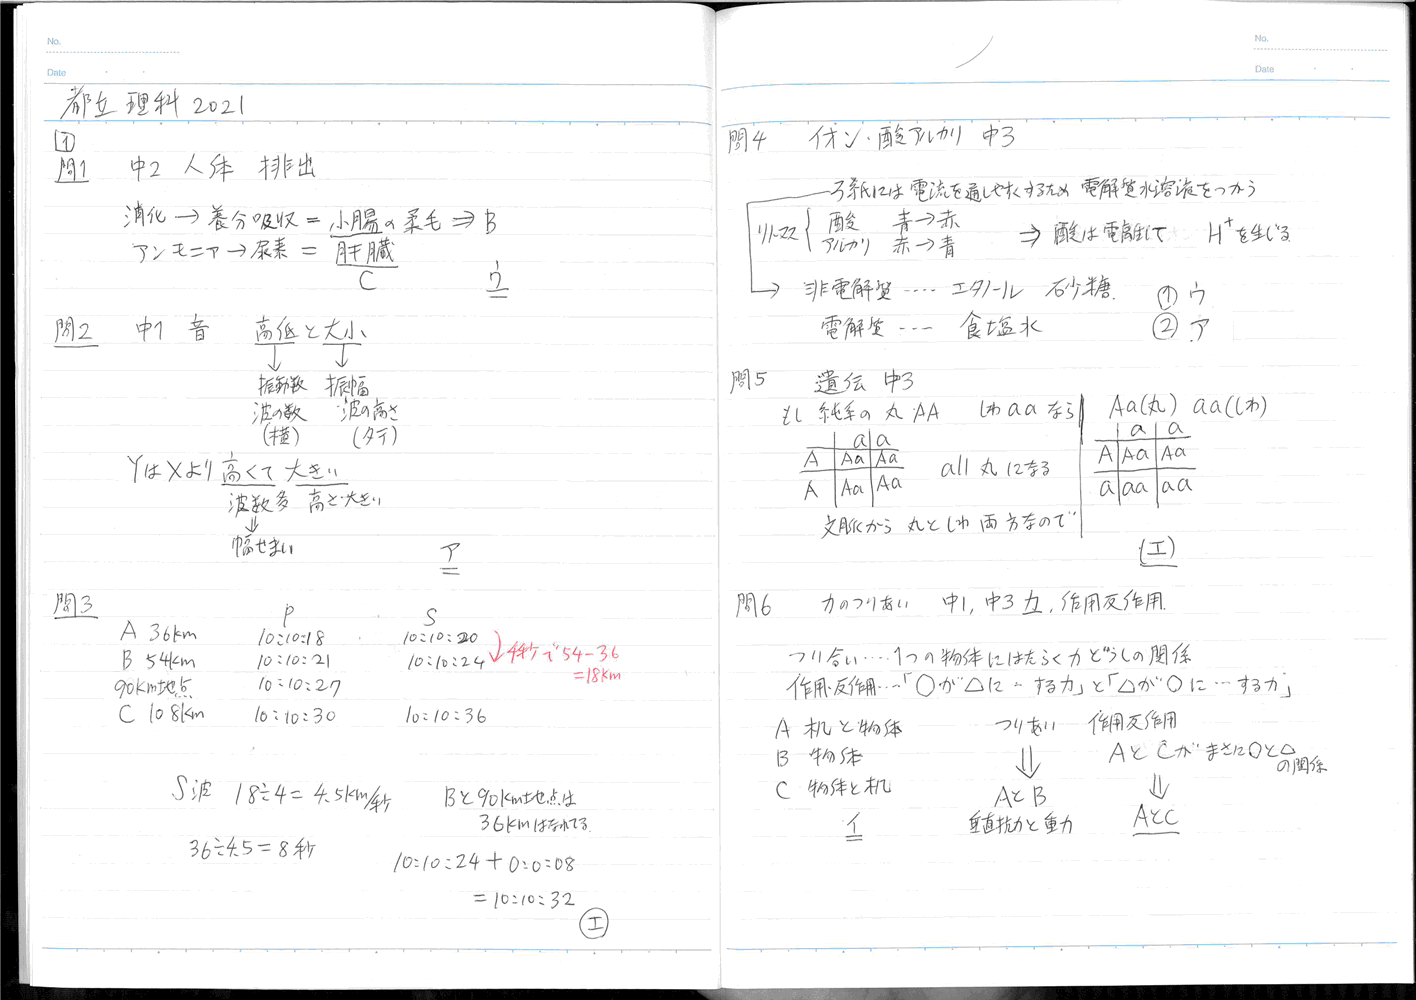 No.
Date
都立 理科 2021
1
問1 中2 人体 排出
消化→養分吸収=小腸の柔毛⇒B
アンモニア→尿素=肝臓
C
ウ
問2 中1 音 高低と大小
振動数 振幅
波の数 波の高さ
(横) (タテ)
YはXより高くて大きい
波数多 高さ大きい
幅せまい
ア
問3
P S
A 36km 10:10:18 10:10:20
B 54km 10:10:21 10:10:24
4秒で54-36
=18km
90km地点 10:10:27
C 108km 10:10:30 10:10:36
S波 18÷4=4.5km/秒
36÷4.5=8秒
Bと90km地点は
36kmはなれてる
10:10:24+0:0:08
=10:10:32
エ
No.
Date
問4 イオン・酸アルカリ 中3
ろ紙には電流を通しやすくするため 電解質水溶液をつかう
リトマス 酸 青→赤
アルカリ 赤→青
⇒ 酸は電離して H+を生じる
非電解質‥‥エタノール 砂糖 ① ウ
電解質‥‥ 食塩水 ② ア
問5 遺伝 中3
もし 純系の 丸 AA しわ aa なら
a a
A Aa Aa
A Aa Aa
all 丸になる
Aa(丸) aa(しわ)
a a
A Aa Aa
a aa aa
文脈から 丸としわ 両方なので
(エ)
問6 力のつりあい 中1, 中3 力, 作用反作用
つり合い‥‥1つの物体にはたらく力どうしの関係
作用・反作用‥「○が△に‥する力」と「△が○に‥する力」
A 机と物体 つりあい 作用反作用
B 物体 AとCがまさに○と△
の関係
C 物体と机
AとB AとC
垂直抗力と重力
イ